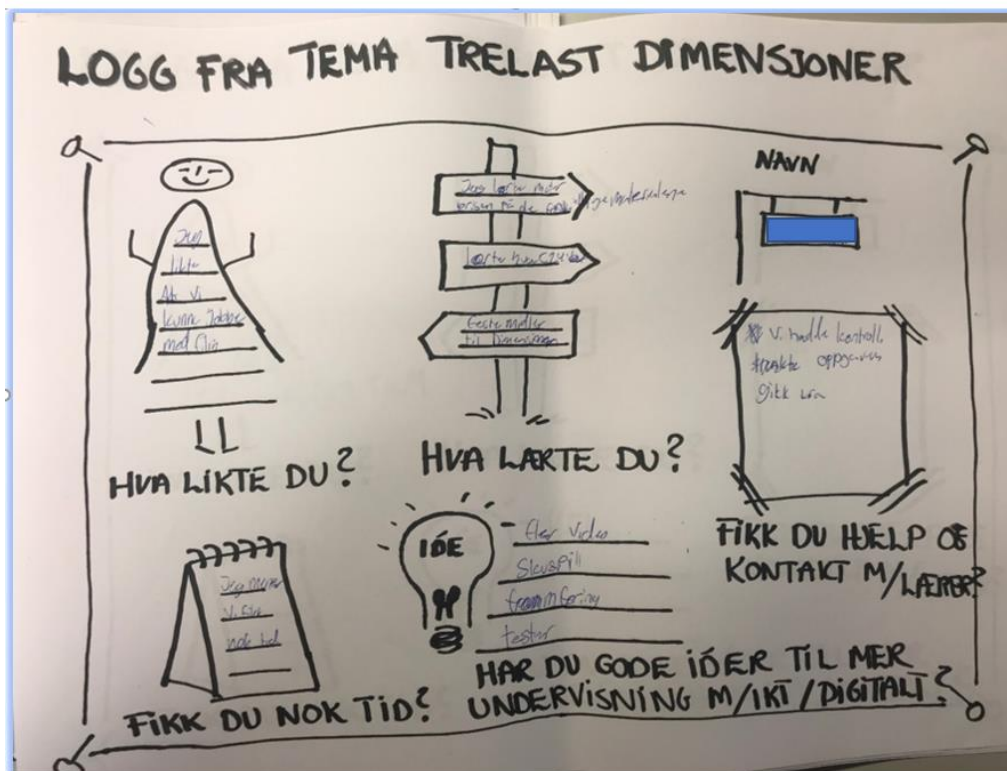 LOGG FRA TEMA TRELAST DIMENSJONER
Jeg
likte
At vi
kunne Jobbe
med
HVA LIKTE DU?
Jeg lærte mder
på de
lærte hva C24
Feste midler
til Dimensjonen
HVA LÆRTE DU?
NAVN
Vi hadde kontroll,
oppgaven
gikk
FIKK DU HJELP OG
KONTAKT M/LÆRER?
Jeg mener
Vi fikk
nok tid
FIKK DU NOK TID?
IDE
fler video
Skuspill
framføring
tester
HAR DU GODE IDÉER TIL MER
UNDERVISNING M/IKT/DIGITALT?